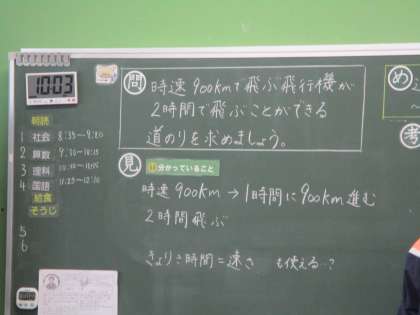 10:03
朝読
1 社会 8:35-9:20
2 算数 9:30-10:15
3 理科
4 国語 11:25-12:10
給食
そうじ
5
6
問
時速900kmで飛ぶ飛行機が
2時間で飛ぶことができる
道のりを求めましょう。
見
①分かっていること
時速900km→1時間に900km進む
2時間飛ぶ
きょり÷時間=速さ も使える…?
め
考